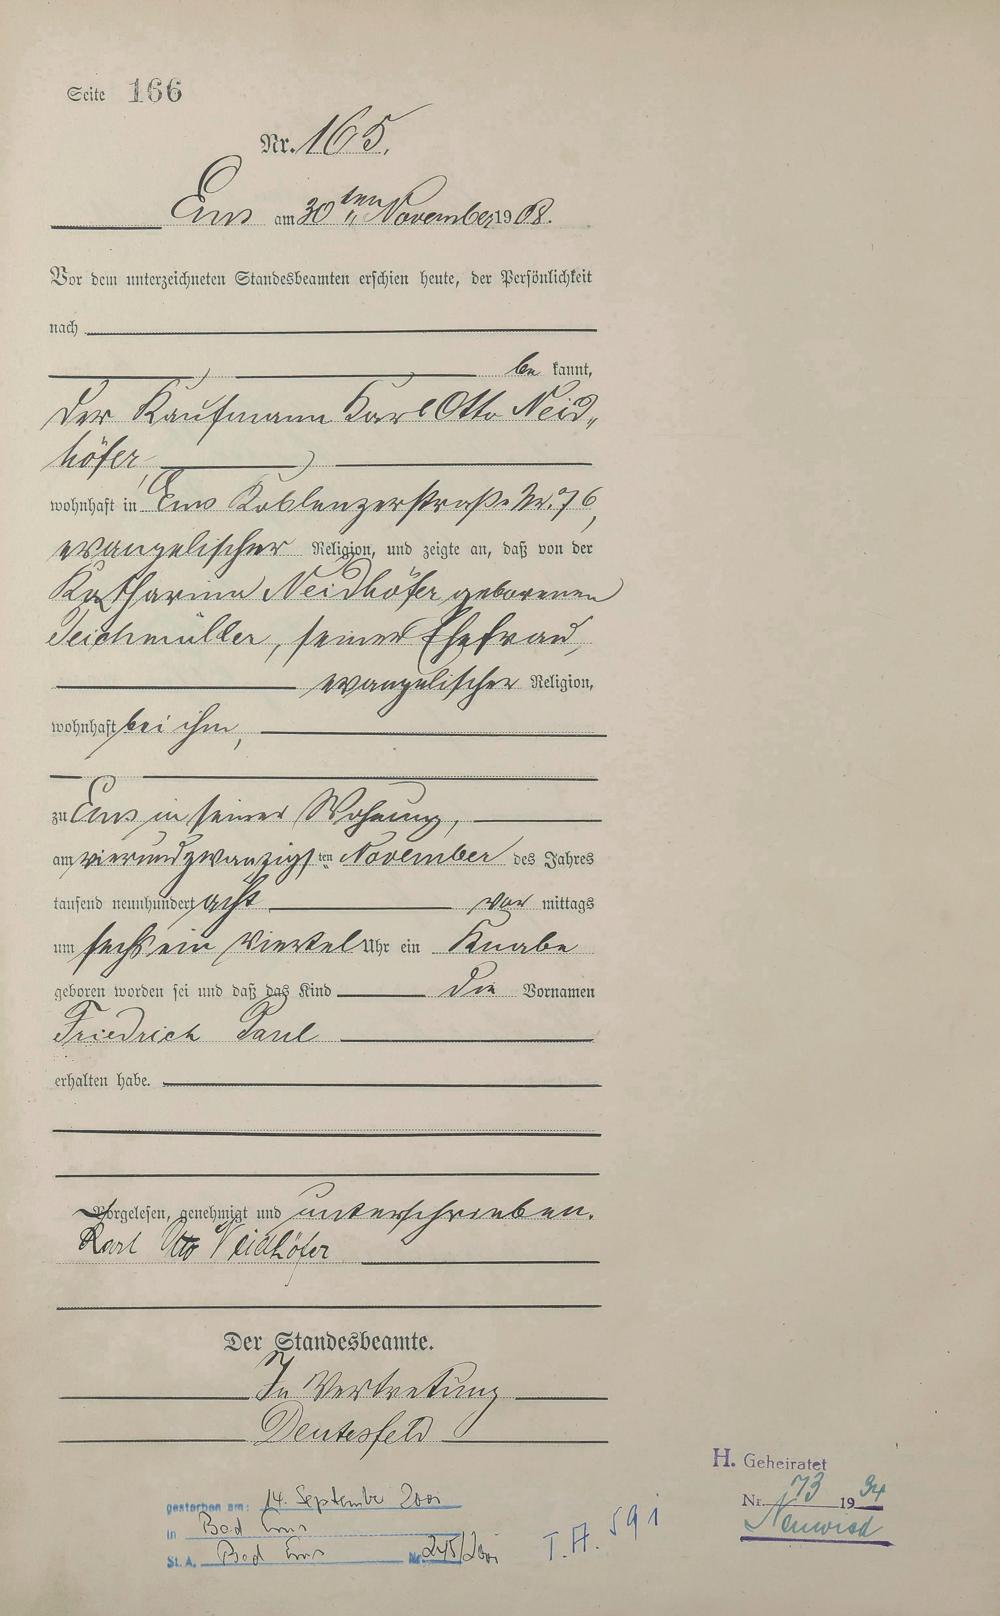 Seite 166
Nr. 165.
Ems am 30ten November 1908.
Vor dem unterzeichneten Standesbeamten erschien heute, der Persönlichkeit
nach
be kannt,
der Kaufmann Karl Otto Neid„
höfer,
wohnhaft in Ems Koblenzerstraße Nr. 76,
evangelischer Religion, und zeigte an, daß von der
Katharina Neidhöfer geborenen
Teichmüller, seiner Ehefrau,
evangelischer Religion,
wohnhaft bei ihm,
zu Ems in seiner Wohnung,
am vierundzwanzigsten November des Jahres
tausend neunhundert acht vor mittags
um sechs ein viertel Uhr ein Knabe
geboren worden sei und daß das Kind die Vornamen
Friedrich Paul
erhalten habe.
Vorgelesen, genehmigt und unterschrieben.
Karl Otto Neidhöfer
Der Standesbeamte.
In Vertretung
H. Geheiratet
Nr. 73 1934
Neuwied
gestorben am: 14. September 2001
in Bad Ems
St. A. Bad Ems Nr. 245/2001
T.A. 591